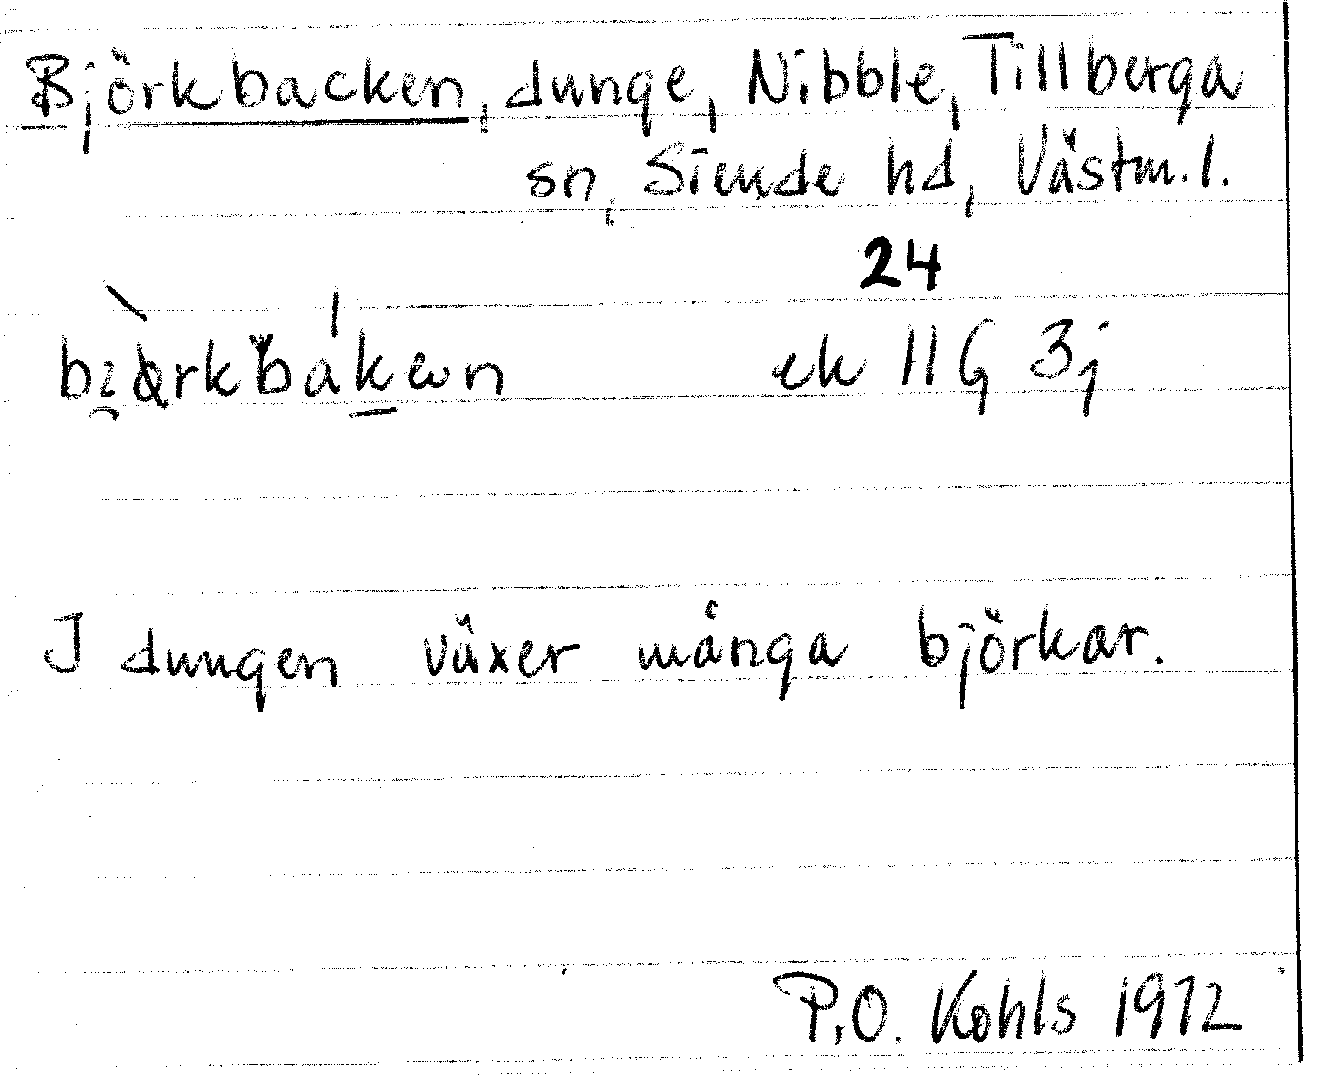 Björkbacken, dunge, Nibble, Tillberga
sn, Siende hd, Västm. l.
24
ek 11G 3j
I dungen växer många björkar.
P.O. Kohls 1972